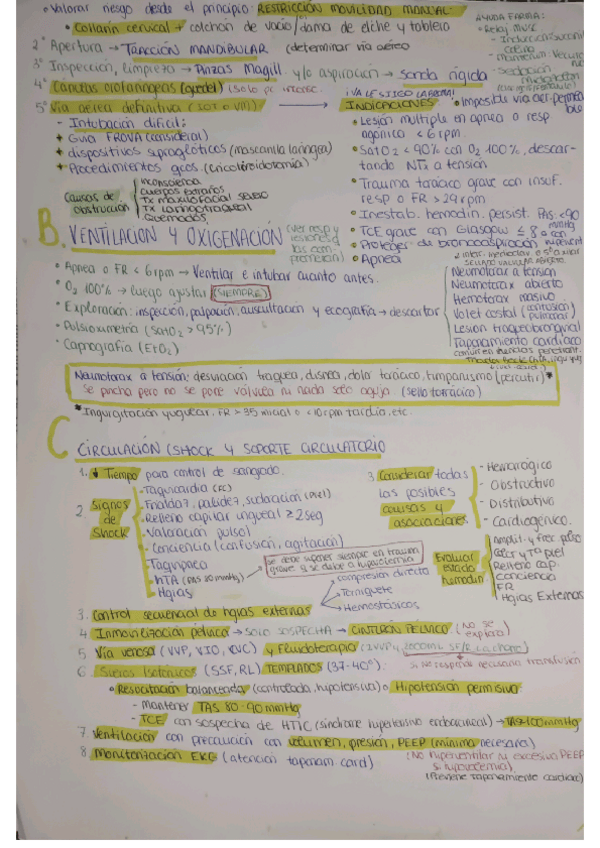 • Valorar riesgo desde el principio: RESTRICCIÓN MOVILIDAD MANUAL:
• Collarín cervical + colchón de vacío/dama de elche y tablero
2º Apertura → TRACCIÓN MANDIBULAR (determinar vía aérea)
3º Inspección, limpieza → Pinzas Magill y/o aspiración → sonda rígida
4º Cánulas orofaríngeas (guedel) (solo pc inconsc.
5º Vía aérea definitiva (IOT o VMI) →
AYUDA FARMA:
• Relaj musc
- Sedación
¡VALE SI IGO LABORAL!
INDICACIONES:
• Imposible vía aér. permeable
• Lesión múltiple en apnea o resp
agónica < 6 rpm.
• SatO2 < 90% con O2 100%, descar-
tando NTx a tensión
• Trauma torácico grave con insuf.
resp o FR > 29 rpm
• Inestab. hemodin. persist. PAS <90 mmHg
• TCE grave con Glasgow ≤ 8 o con
• Proteger de broncoaspiración
• Apnea
- Intubación difícil:
+ Guía FROVA (considerar)
+ dispositivos supraglóticos (mascarilla laríngea)
+ Procedimientos qcos. (Cricotiroidotomía)
Causas de obstrucción
Inconsciencia
Cuerpos extraños
Tx maxilofacial severo
Tx laringotraqueal
Quemados
B. VENTILACIÓN Y OXIGENACIÓN
(ver resp y lesiones q las comprometen)
• Apnea o FR < 6 rpm → Ventilar e intubar cuanto antes.
• O2 100% → luego ajustar (SIEMPRE)
• Exploración: inspección, palpación, auscultación y ecografía → descartar
• Pulsioximetría (SatO2 > 95%)
• Capnografía (EtO2)
Neumotórax a tensión
Neumotórax abierto
Hemotórax masivo
Volet costal (contusión pulmonar)
Lesión traqueobronquial
Taponamiento cardíaco
Neumotórax a tensión: desviación tráquea, disnea, dolor torácico, timpanismo (percutir)*
Se pincha pero no se pone válvula ni nada solo aguja. (sello torácico)
* Ingurgitación yugular, FR > 35 inicial o < 10 rpm tardía, etc.
C CIRCULACIÓN (SHOCK Y SOPORTE CIRCULATORIO
1. ↓ Tiempo para control de sangrado.
2. Signos de Shock
- Taquicardia (FC)
- Frialdad, palidez, sudoración (Piel)
- Relleno capilar ungueal ≥ 2 seg
- Valoración pulso
- Conciencia (confusión, agitación)
- Taquipnea
- hTA (PAS 90 mmHg)
- Hgias
se debe suponer siempre en trauma
grave q se debe a hipovolemia
3. Considerar todas
las posibles
causas y
asociaciones
- Hemorrágico
- Obstructivo
- Distributivo
- Cardiogénico.
Evaluar estado hemodin
Amplit. y frec pulso
Color y Tª piel
Relleno cap.
Conciencia
FR
Hgias Externas
3. Control secuencial de hgias externas
compresión directa
Torniquete
Hemostásicos
4 Inmovilización pélvica → SOLO SOSPECHA → CINTURÓN PÉLVICO (NO se explora)
5 Vía venosa (VVP, VIO, KVC) y Fluidoterapia
6 Sueros Isotónicos (SSF, RL) TEMPLADOS (37-40º):
si no responde necesaria transfusión
• Resucitación balanceada (controlada, hipotensiva) o Hipotensión permisiva:
- Mantener TAS 80-90 mmHg
- TCE con sospecha de HTIC (síndrome hipertensivo endocraneal) → TAS>100 mmHg
7. Ventilación con precaución con volumen, presión, PEEP (mínimo necesaria)
8 Monitorización EKG (atención taponam card)
(NO hiperventilar ni excesiva PEEP
si hipovolemia)
(Previene taponamiento cardíaco)